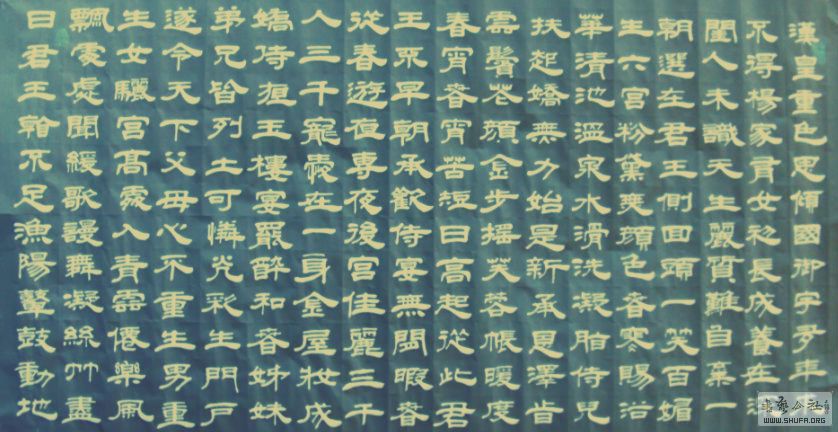 漢皇重色思傾國御宇多年求
不得楊家有女初長成養在深
閨人未識天生麗質難自棄一
朝選在君王側回頭一笑百媚
生六宮粉黛無顏色春寒賜浴
華清池溫泉水滑洗凝脂侍兒
扶起嬌無力始是新承恩澤時
雲鬢花顏金步搖芙蓉帳暖度
春宵春宵苦短日高起從此君
王不早朝承歡侍宴無閒暇春
從春遊夜專夜後宮佳麗三千
人三千寵愛在一身金屋妝成
嬌侍夜玉樓宴罷醉和春姊妹
弟兄皆列土可憐光彩生門戶
遂令天下父母心不重生男重
生女驪宮高處入青雲僊樂風
飄處處聞緩歌謾舞凝絲竹盡
日君王看不足漁陽鼙鼓動地
WWW.SHUFA.ORG